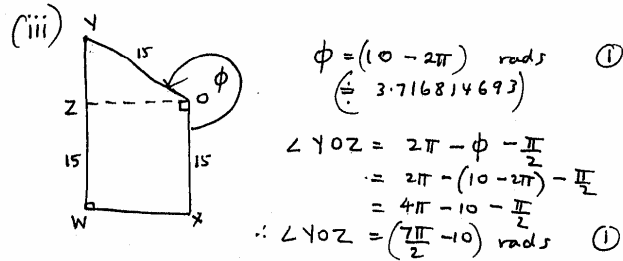 (iii)
Y
15
φ
Z
O
15
15
W
X
φ = (10 - 2π) rads ①
(≑ 3.716814693)
∠YOZ = 2π - φ - π/2
= 2π - (10 - 2π) - π/2
= 4π - 10 - π/2
∴ ∠YOZ = (7π/2 - 10) rads ①